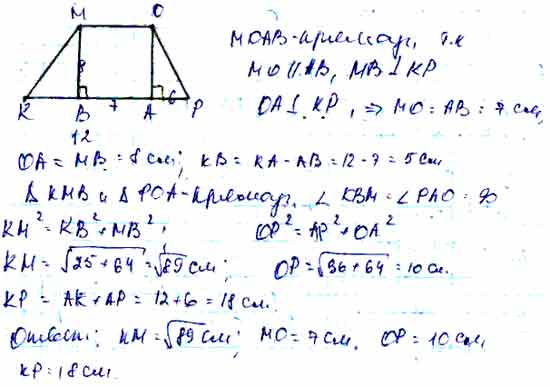 M O
8
K B 7 A 6 P
12
MOAB - прямоуг, т.к
MO || AB, MB ⊥ KP
OA ⊥ KP, ⇒ MO = AB = 7 см,
OA = MB = 8 см; KB = KA - AB = 12 - 7 = 5 см
Δ KMB и Δ POA - прямоуг, ∠ KBM = ∠ PAO = 90
KM² = KB² + MB², OP² = AP² + OA²
KM = √25 + 64 = √89 см; OP = √36 + 64 = 10 см.
KP = AK + AP = 12 + 6 = 18 см.
Ответ: KM = √89 см; MO = 7 см, OP = 10 см,
KP = 18 см.